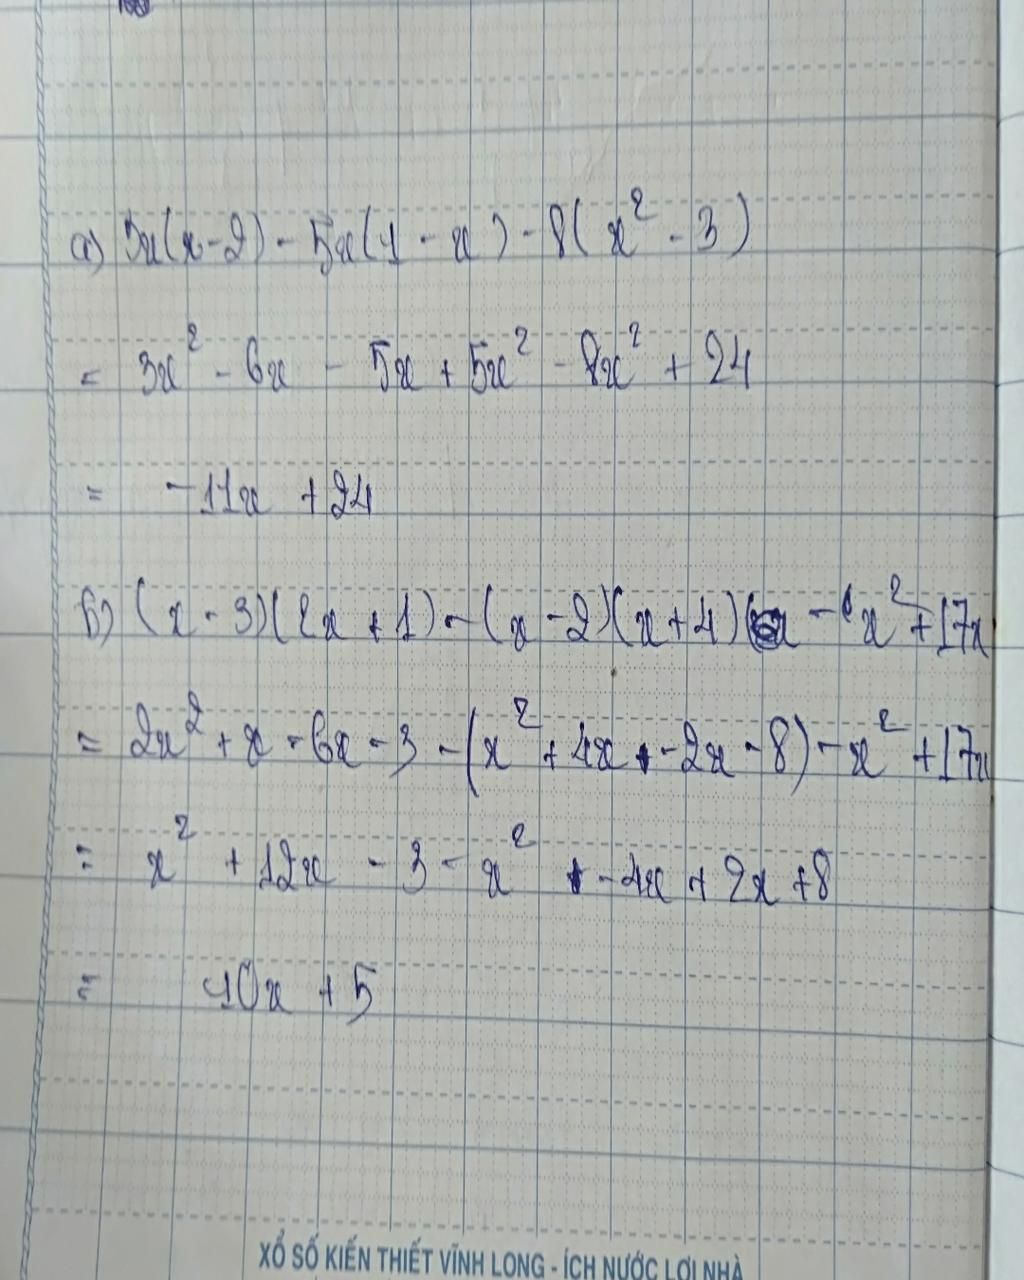 a) 3x(x-2) - 5x(1 - x) - 8(x² - 3)
= 3x² - 6x - 5x + 5x² - 8x² + 24
= -11x + 24
b) (x - 3)(2x + 1) - (x - 2)(x + 4) - x² + 17x
= 2x² + x - 6x - 3 - (x² + 4x - 2x - 8) - x² + 17x
= x² + 12x - 3 - x² - 4x + 2x + 8
= 10x + 5
XỔ SỐ KIẾN THIẾT VĨNH LONG - ÍCH NƯỚC LỢI NHÀ